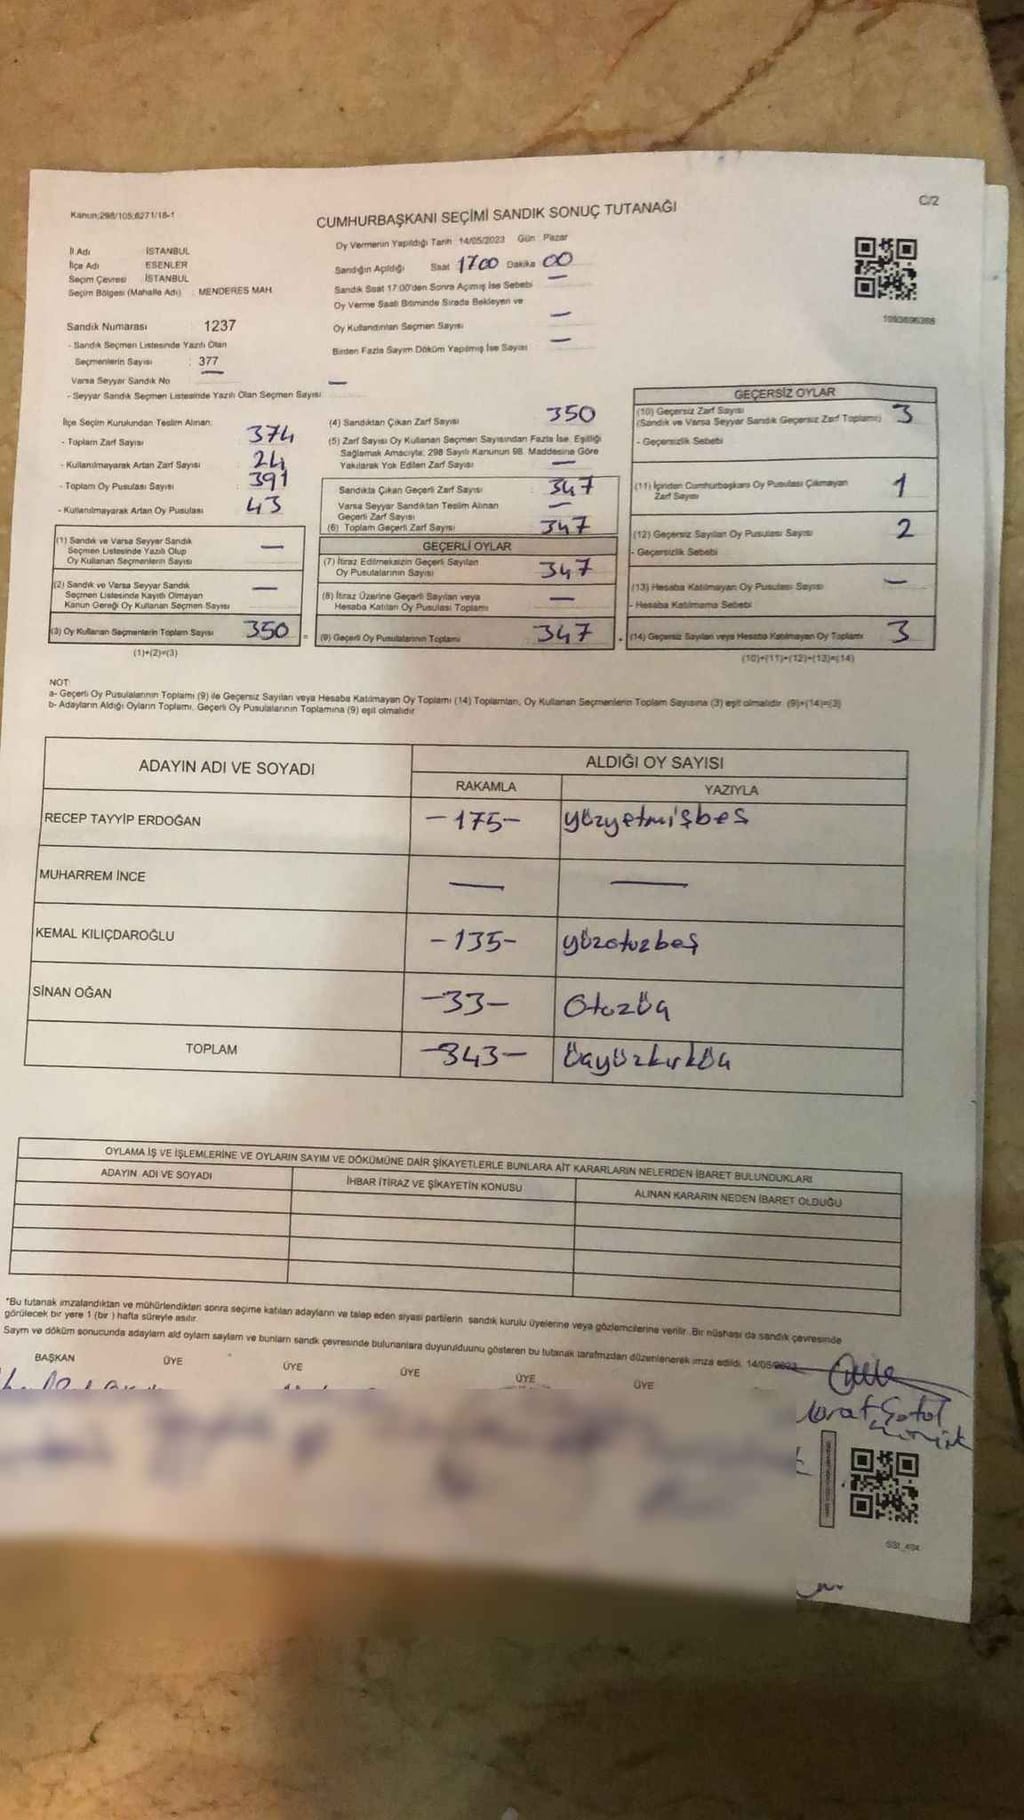 Kanun;298/105;6271/18-1
C/2
CUMHURBAŞKANI SEÇİMİ SANDIK SONUÇ TUTANAĞI
İl Adı İSTANBUL
İlçe Adı ESENLER
Seçim Çevresi İSTANBUL
Seçim Bölgesi (Mahalle Adı) : MENDERES MAH.
Oy Vermenin Yapıldığı Tarih 14/05/2023 Gün : Pazar
Sandığın Açıldığı Saat 1700 Dakika 00
Sandık Saat 17:00'den Sonra Açımış İse Sebebi —
Oy Verme Saati Bitiminde Sırada Bekleyen ve
Oy Kullandırılan Seçmen Sayısı —
Birden Fazla Sayım Döküm Yapılmış İse Sayısı —
Sandık Numarası 1237
- Sandık Seçmen Listesinde Yazılı Olan
Seçmenlerin Sayısı : 377
Varsa Seyyar Sandık No —
- Seyyar Sandık Seçmen Listesinde Yazılı Olan Seçmen Sayısı —
İlçe Seçim Kurulundan Teslim Alınan:
- Toplam Zarf Sayısı 374
- Kullanılmayarak Artan Zarf Sayısı 24
- Toplam Oy Pusulası Sayısı 391
- Kullanılmayarak Artan Oy Pusulası 43
(1) Sandık ve Varsa Seyyar Sandık
Seçmen Listesinde Yazılı Olup
Oy Kullanan Seçmenlerin Sayısı —
(2) Sandık ve Varsa Seyyar Sandık
Seçmen Listesinde Kayıtlı Olmayan
Kanun Gereği Oy Kullanan Seçmen Sayısı —
(3) Oy Kullanan Seçmenlerin Toplam Sayısı 350 =
(1)+(2)=(3)
(4) Sandıktan Çıkan Zarf Sayısı 350
(5) Zarf Sayısı Oy Kullanan Seçmen Sayısından Fazla İse, Eşitliği
Sağlamak Amacıyla; 298 Sayılı Kanunun 98. Maddesine Göre
Yakılarak Yok Edilen Zarf Sayısı —
Sandıkta Çıkan Geçerli Zarf Sayısı 347
Varsa Seyyar Sandıktan Teslim Alınan
Geçerli Zarf Sayısı —
(6) Toplam Geçerli Zarf Sayısı 347
GEÇERLİ OYLAR
(7) İtiraz Edilmeksizin Geçerli Sayılan
Oy Pusulalarının Sayısı 347
(8) İtiraz Üzerine Geçerli Sayılan veya
Hesaba Katılan Oy Pusulası Toplamı —
(9) Geçerli Oy Pusulalarının Toplamı 347 +
GEÇERSİZ OYLAR
(10) Geçersiz Zarf Sayısı
(Sandık ve Varsa Seyyar Sandık Geçersiz Zarf Toplamı) 3
- Geçersizlik Sebebi
(11) İçinden Cumhurbaşkanı Oy Pusulası Çıkmayan
Zarf Sayısı 1
(12) Geçersiz Sayılan Oy Pusulası Sayısı 2
- Geçersizlik Sebebi
(13) Hesaba Katılmayan Oy Pusulası Sayısı —
- Hesaba Katılmama Sebebi
(14) Geçersiz Sayılan veya Hesaba Katılmayan Oy Toplamı 3
(10)+(11)+(12)+(13)=(14)
NOT:
a- Geçerli Oy Pusulalarının Toplamı (9) ile Geçersiz Sayılan veya Hesaba Katılmayan Oy Toplamı (14) Toplamları, Oy Kullanan Seçmenlerin Toplam Sayısına (3) eşit olmalıdır. (9)+(14)=(3)
b- Adayların Aldığı Oyların Toplamı, Geçerli Oy Pusulalarının Toplamına (9) eşit olmalıdır.
ADAYIN ADI VE SOYADI ALDIĞI OY SAYISI
RAKAMLA YAZIYLA
RECEP TAYYİP ERDOĞAN -175- yüzyetmişbeş
MUHARREM İNCE — —
KEMAL KILIÇDAROĞLU -135- yüzotuzbeş
SİNAN OĞAN -33- Otuzüç
TOPLAM -343- Üçyüzkırküç
OYLAMA İŞ VE İŞLEMLERİNE VE OYLARIN SAYIM VE DÖKÜMÜNE DAİR ŞİKAYETLERLE BUNLARA AİT KARARLARIN NELERDEN İBARET BULUNDUKLARI
ADAYIN ADI VE SOYADI İHBAR İTİRAZ VE ŞİKAYETİN KONUSU ALINAN KARARIN NEDEN İBARET OLDUĞU
*Bu tutanak imzalandıktan ve mühürlendikten sonra seçime katılan adayların ve talep eden siyasi partilerin sandık kurulu üyelerine veya gözlemcilerine verilir. Bir nüshası da sandık çevresinde
görülecek bir yere 1 (bir ) hafta süreyle asılır.
Sayım ve döküm sonucunda adayların ald oyların sayları ve bunların sandk çevresinde bulunanlara duyurulduunu gösteren bu tutanak tarafmzdan düzenlenerek imza edildi. 14/05/2023
BAŞKAN ÜYE ÜYE ÜYE ÜYE ÜYE